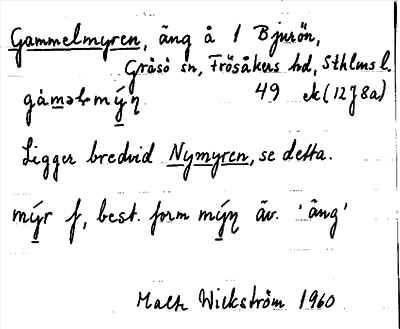 Gammelmyren, äng å 1 Bjurön,
Gräsö sn, Frösåkers hd, Sthlms l.
gáməlmýn 49 ek (12J8a)
Ligger bredvid Nymyren, se detta.
mýr f, best. form mýn äv. 'äng'
Malte Wickström 1960